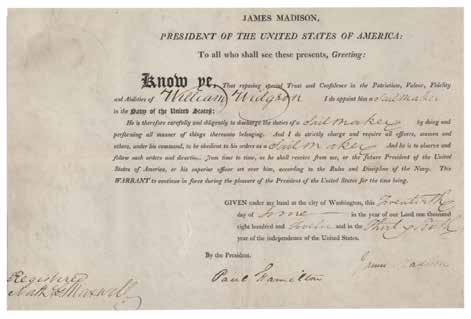 JAMES MADISON,
PRESIDENT OF THE UNITED STATES OF AMERICA:
To all who shall see these presents, Greeting:
Know ye, That reposing special Trust and Confidence in the Patriotism, Valour, Fidelity
and Abilities of William Widgeon I do appoint him a Sail maker
in the Navy of the United States:
He is therefore carefully and diligently to discharge the duties of a Sail maker by doing and
performing all manner of things thereunto belonging. And I do strictly charge and require all officers, seamen and
others, under his command, to be obedient to his orders as a Sail maker And he is to observe and
follow such orders and directions, from time to time, as he shall receive from me, or the future President of the
United States of America, or his superior officer set over him, according to the Rules and Discipline of the Navy. This
WARRANT to continue in force during the pleasure of the President of the United States for the time being.
GIVEN under my hand at the city of Washington, this
day of June in the year of our Lord one thousand
eight hundred and twelve and in the Thirty Sixth
year of the independence of the United States.
By the President.
James Madison
Paul Hamilton
Registered
Maxwell